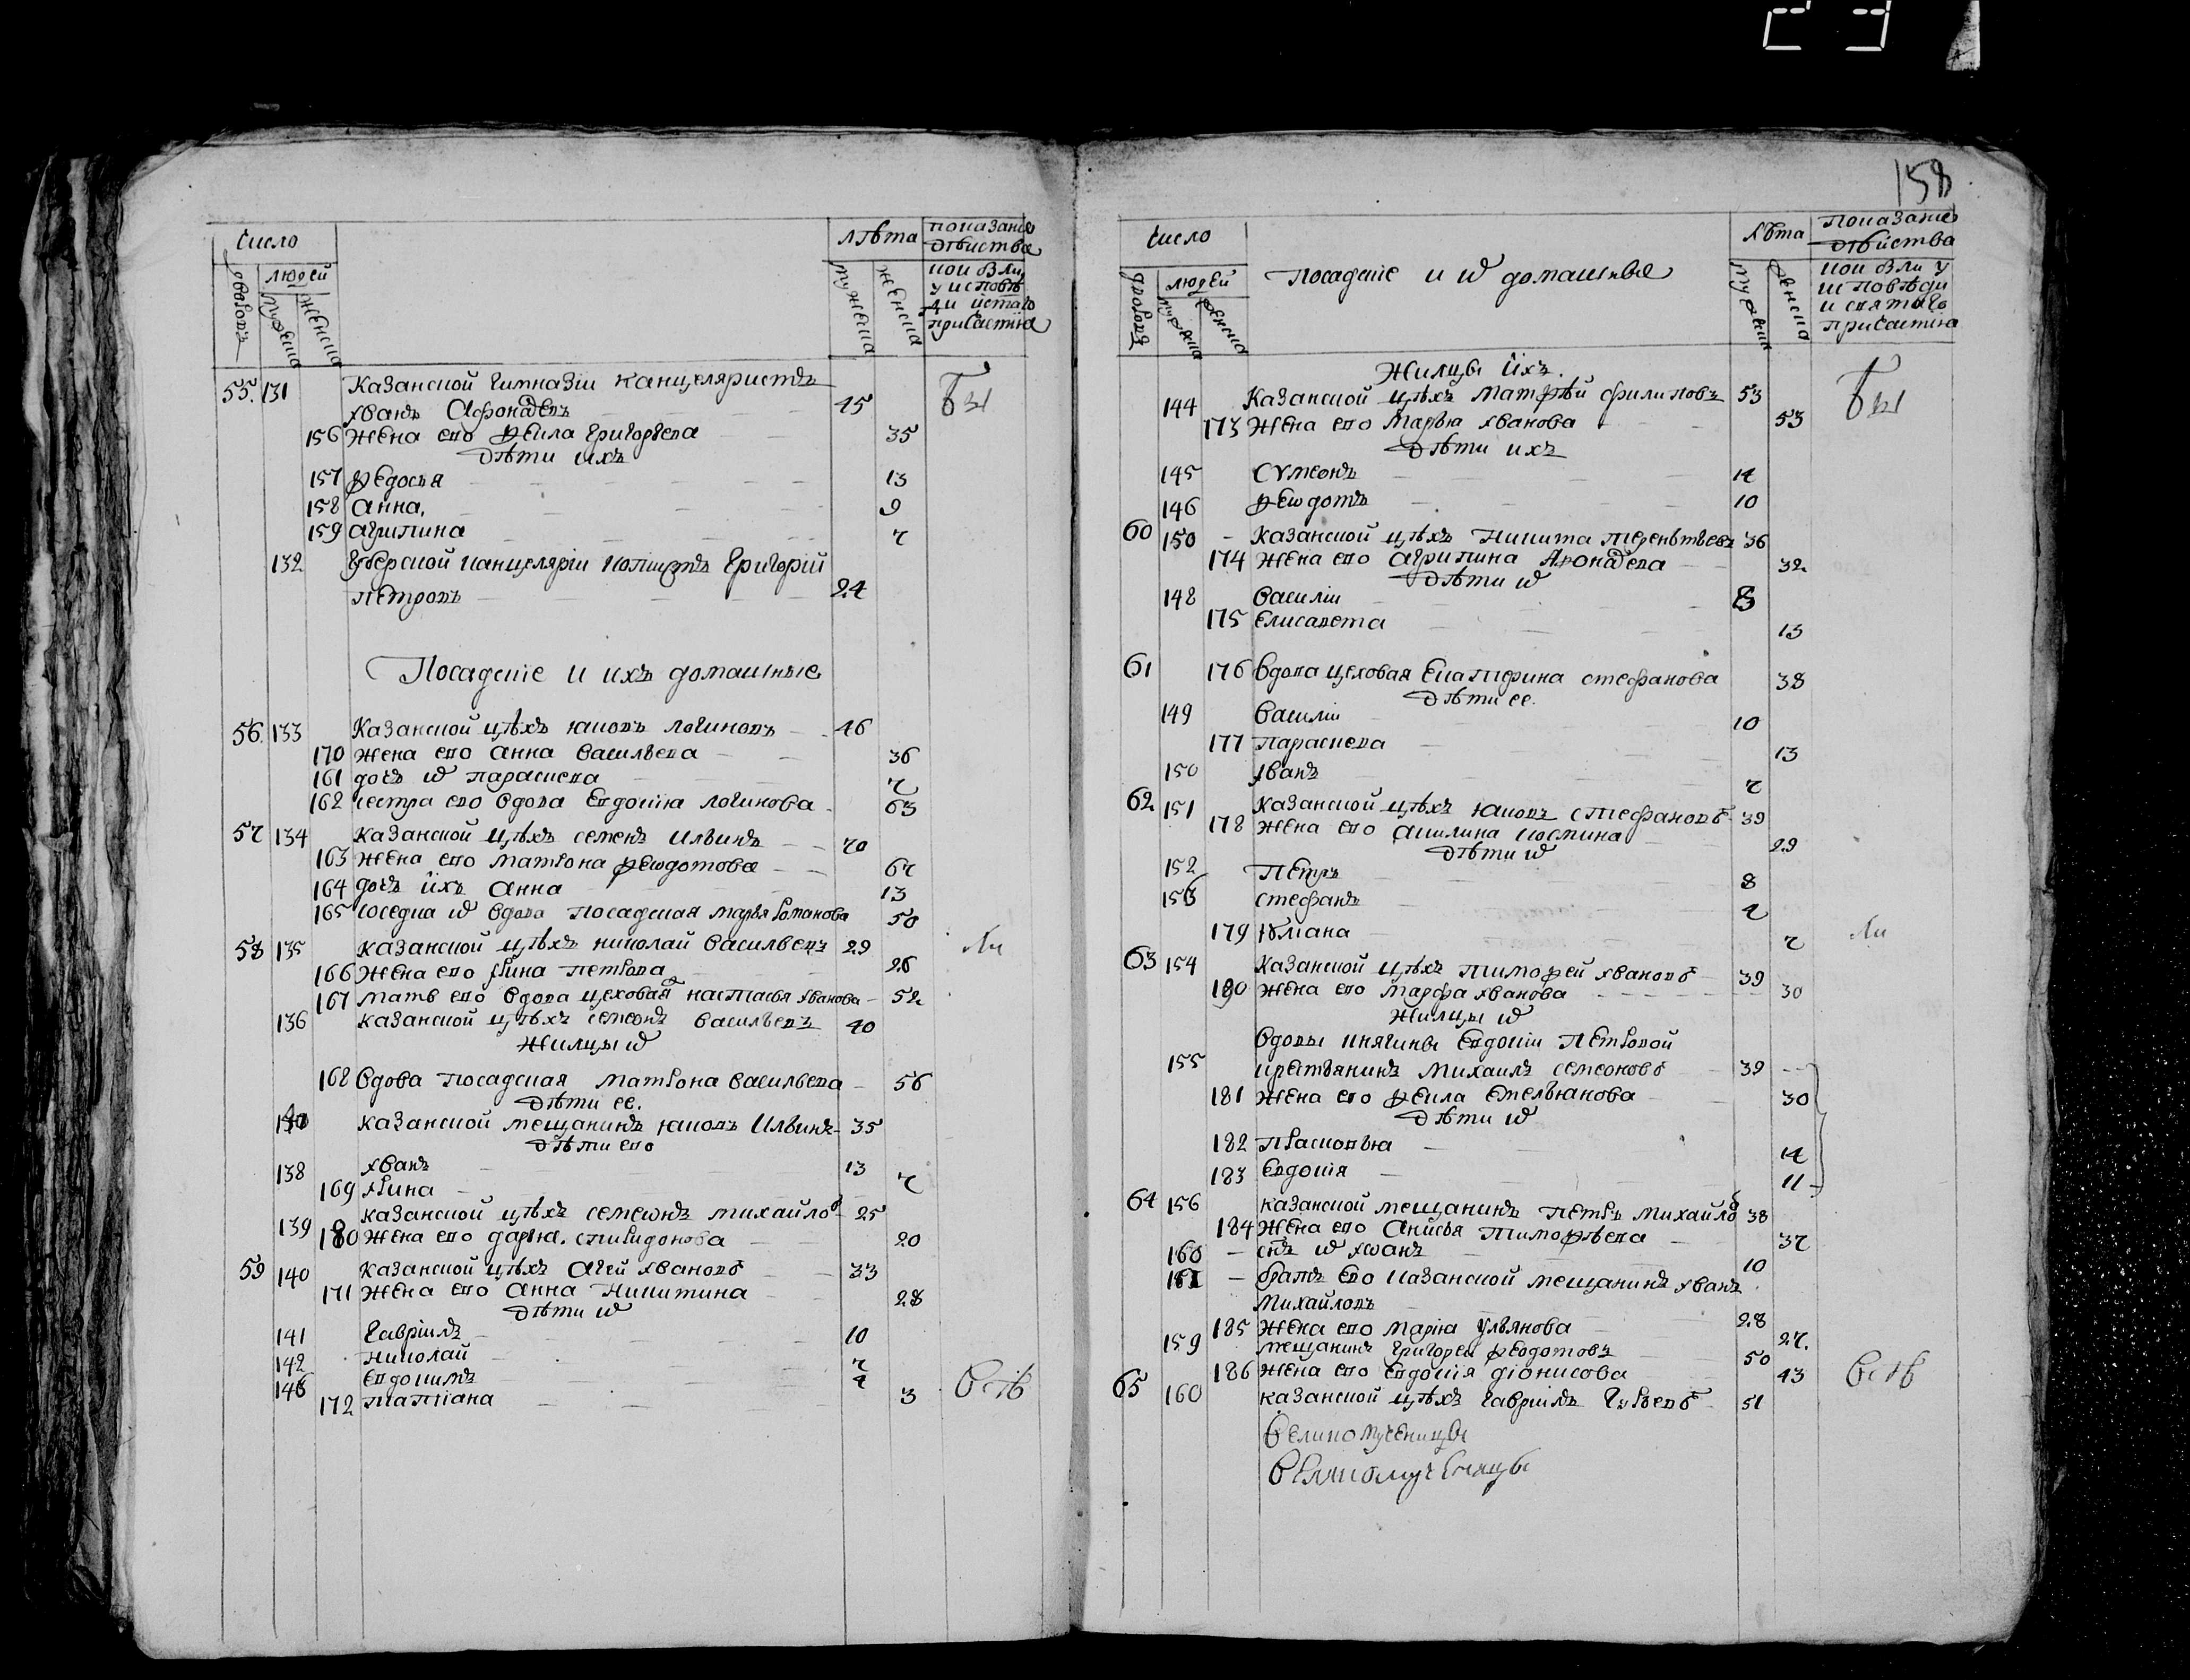 158
число
лѣта
показание
дѣйства
дворовъ
людей
мужеска
женска
мужеска
женска
кои были
у исповѣ
ди и стаго
причастия
55. 131 Казанской гимназіи канцеляристъ
Іванъ Афонасьевъ 45 Бы
156 Жена ево Ѳекла Григорьева 35
Дѣти ихъ
157 Ѳедосья 13
158 Анна. 9
159 Агрипина 7
132 Губерской канцеляріи копиистъ Григорій
Петровъ 24
Посадскіе и ихъ домашные
56. 133 Казанской цѣхъ Іаковъ Логиновъ 46
170 Жена ево Анна Васильева 36
161 дочь ихъ Параскева 7
162 сестра ево вдова Евдокия Логинова 63
57 134 Казанской цѣхъ Семенъ Ильинъ 70
163 Жена ево Матрона Ѳеѡдотова 67
164 дочь ихъ Анна 13
165 соседка ихъ вдова посадская Марья Романова 50
58 135 Казанской цѣхъ Николай Васильевъ 29 ли
166 Жена ево Ірина Петрова 26
167 Мать ево вдова цеховая Настасья Іванова 52
136 Казанской цѣхъ Семеонъ Васильевъ 40
Жилцы ихъ
168 Вдова посадская Матрона Васильева 56
Дѣти ее.
Казанской мещанинъ Іаковъ Ильинъ 35
Дѣти ево
138 Іванъ 13
169 Ірина 7
139 Казанской цѣхъ Семеѡнъ Михайловъ 25
180 Жена ево Дарья Спиридонова 20
59 140 Казанской цѣхъ Агей Івановъ 33
171 Жена ево Анна Никитина 28
Дѣти ихъ
141 Гавріилъ 10
142 Николай 7
143 Евдокимъ 4
172 Татіана 3 Всѣ
число
Посадскіе и ихъ домашныя
лѣта
показание
дѣйства
дворовъ
людей
мужеска
женска
мужеска
женска
кои были у
исповѣди
и святаго
причастія
Жилцы ихъ.
144 Казанской цѣхъ Матѳѣй Филиповъ 53 Бы
173 Жена ево Марья Іванова 53
Дѣти ихъ
145 Сѵмеонъ 14
146 Ѳеѡдотъ 10
60 150 - Казанской цѣхъ Никита Терентьевъ 36
174 Жена ево Агрипина Афонасьева 32
Дѣти ихъ
148 Василіи 8
175 Елисавета 13
61 176 Вдова цеховая Екатерина Стефанова 38
Дѣти ее.
149 Василіи 10
177 Параскева 13
150 Іванъ 7
62 151 Казанской цѣхъ Іаковъ Стефановъ 39
178 Жена ево Акилина Космина 29
Дѣти ихъ
152 Петръ 8
153 Стефанъ 4
179 Іуліана 7 ли
63 154 Казанской цѣхъ Тимоѳей Івановъ 39
180 Жена ево Марфа Іванова 30
Жилцы ихъ
Вдовы княгини Евдокіи Петровой
155 крестьянинъ Михаилъ Семеоновъ 39
181 Жена его Ѳекла Емельянова 30
Дѣти ихъ
182 Прасковья 14
183 Евдокія 11
64 156 Казанской мещанинъ Петръ Михайловъ 38
184 Жена ево Анисья Тимоѳѣева 37
160 - снъ ихъ Іѡанъ 10
161 - братъ ево казанской мещанинъ Іванъ
Михайловъ 28
185 Жена ево Марія Ульянова 27.
159 мещанинъ Григорей Ѳеодотовъ 50
186 Жена ево Евдокія Діонисова 43 Всѣ
65 160 Казанской цѣхъ Гавріилъ Гурьевъ 51
Великомученицы
Великомученицы